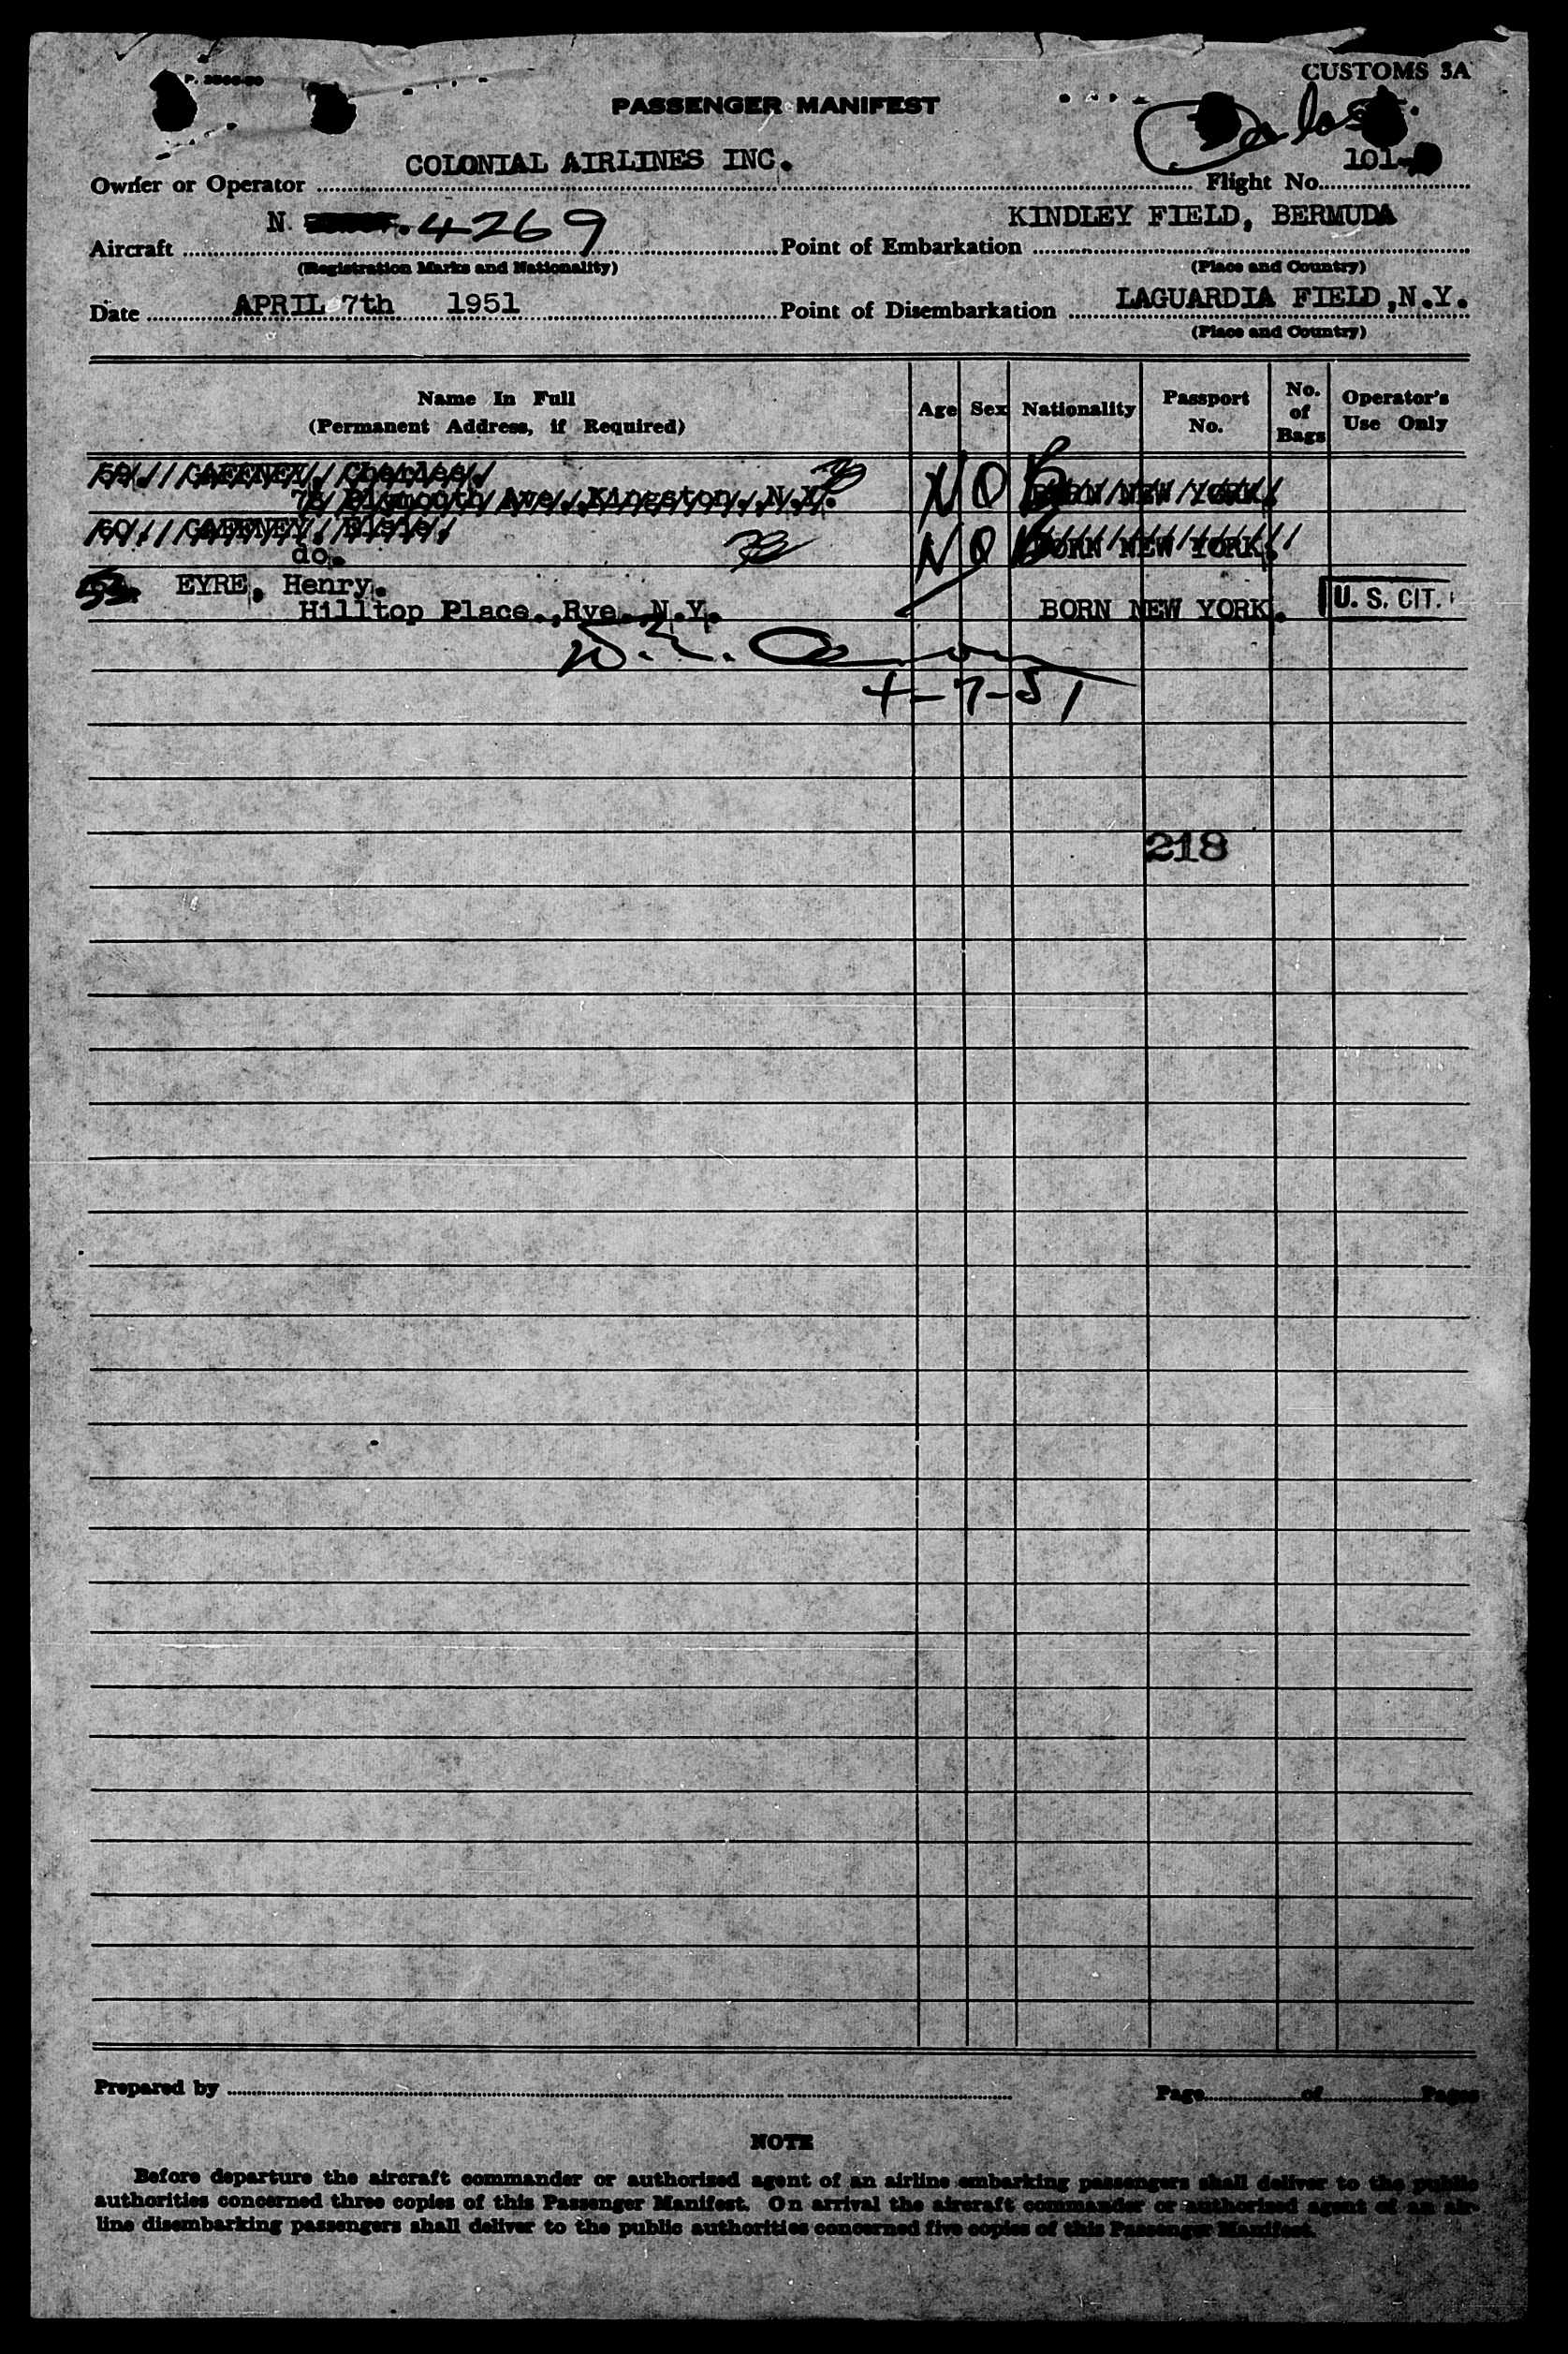 CUSTOMS 3A
PASSENGER MANIFEST
COLONIAL AIRLINES INC.
101-
Owner or Operator Flight No.
N. 4269
KINDLEY FIELD, BERMUDA
Aircraft Point of Embarkation
(Registration Marks and Nationality) (Place and Country)
APRIL 7th 1951
LAGUARDIA FIELD,N.Y.
Date Point of Disembarkation
(Place and Country)
Name In Full
(Permanent Address, if Required)
Age Sex Nationality Passport No. No. of Bags Operator's Use Only
59. GAFFNEY, Charles.
78 Plymouth Ave., Kingston, N.Y. NOB BORN NEW YORK.
60. GAFFNEY, 
do. NOB BORN NEW YORK.
EYRE, Henry.
Hilltop Place.,Rye.,N.Y. BORN NEW YORK. U. S. CIT.
4-7-51
218
Prepared by Page of Pages
NOTE
Before departure the aircraft commander or authorized agent of an airline embarking passengers shall deliver to the public
authorities concerned three copies of this Passenger Manifest. On arrival the aircraft commander or authorized agent of an air-
line disembarking passengers shall deliver to the public authorities concerned five copies of this Passenger Manifest.